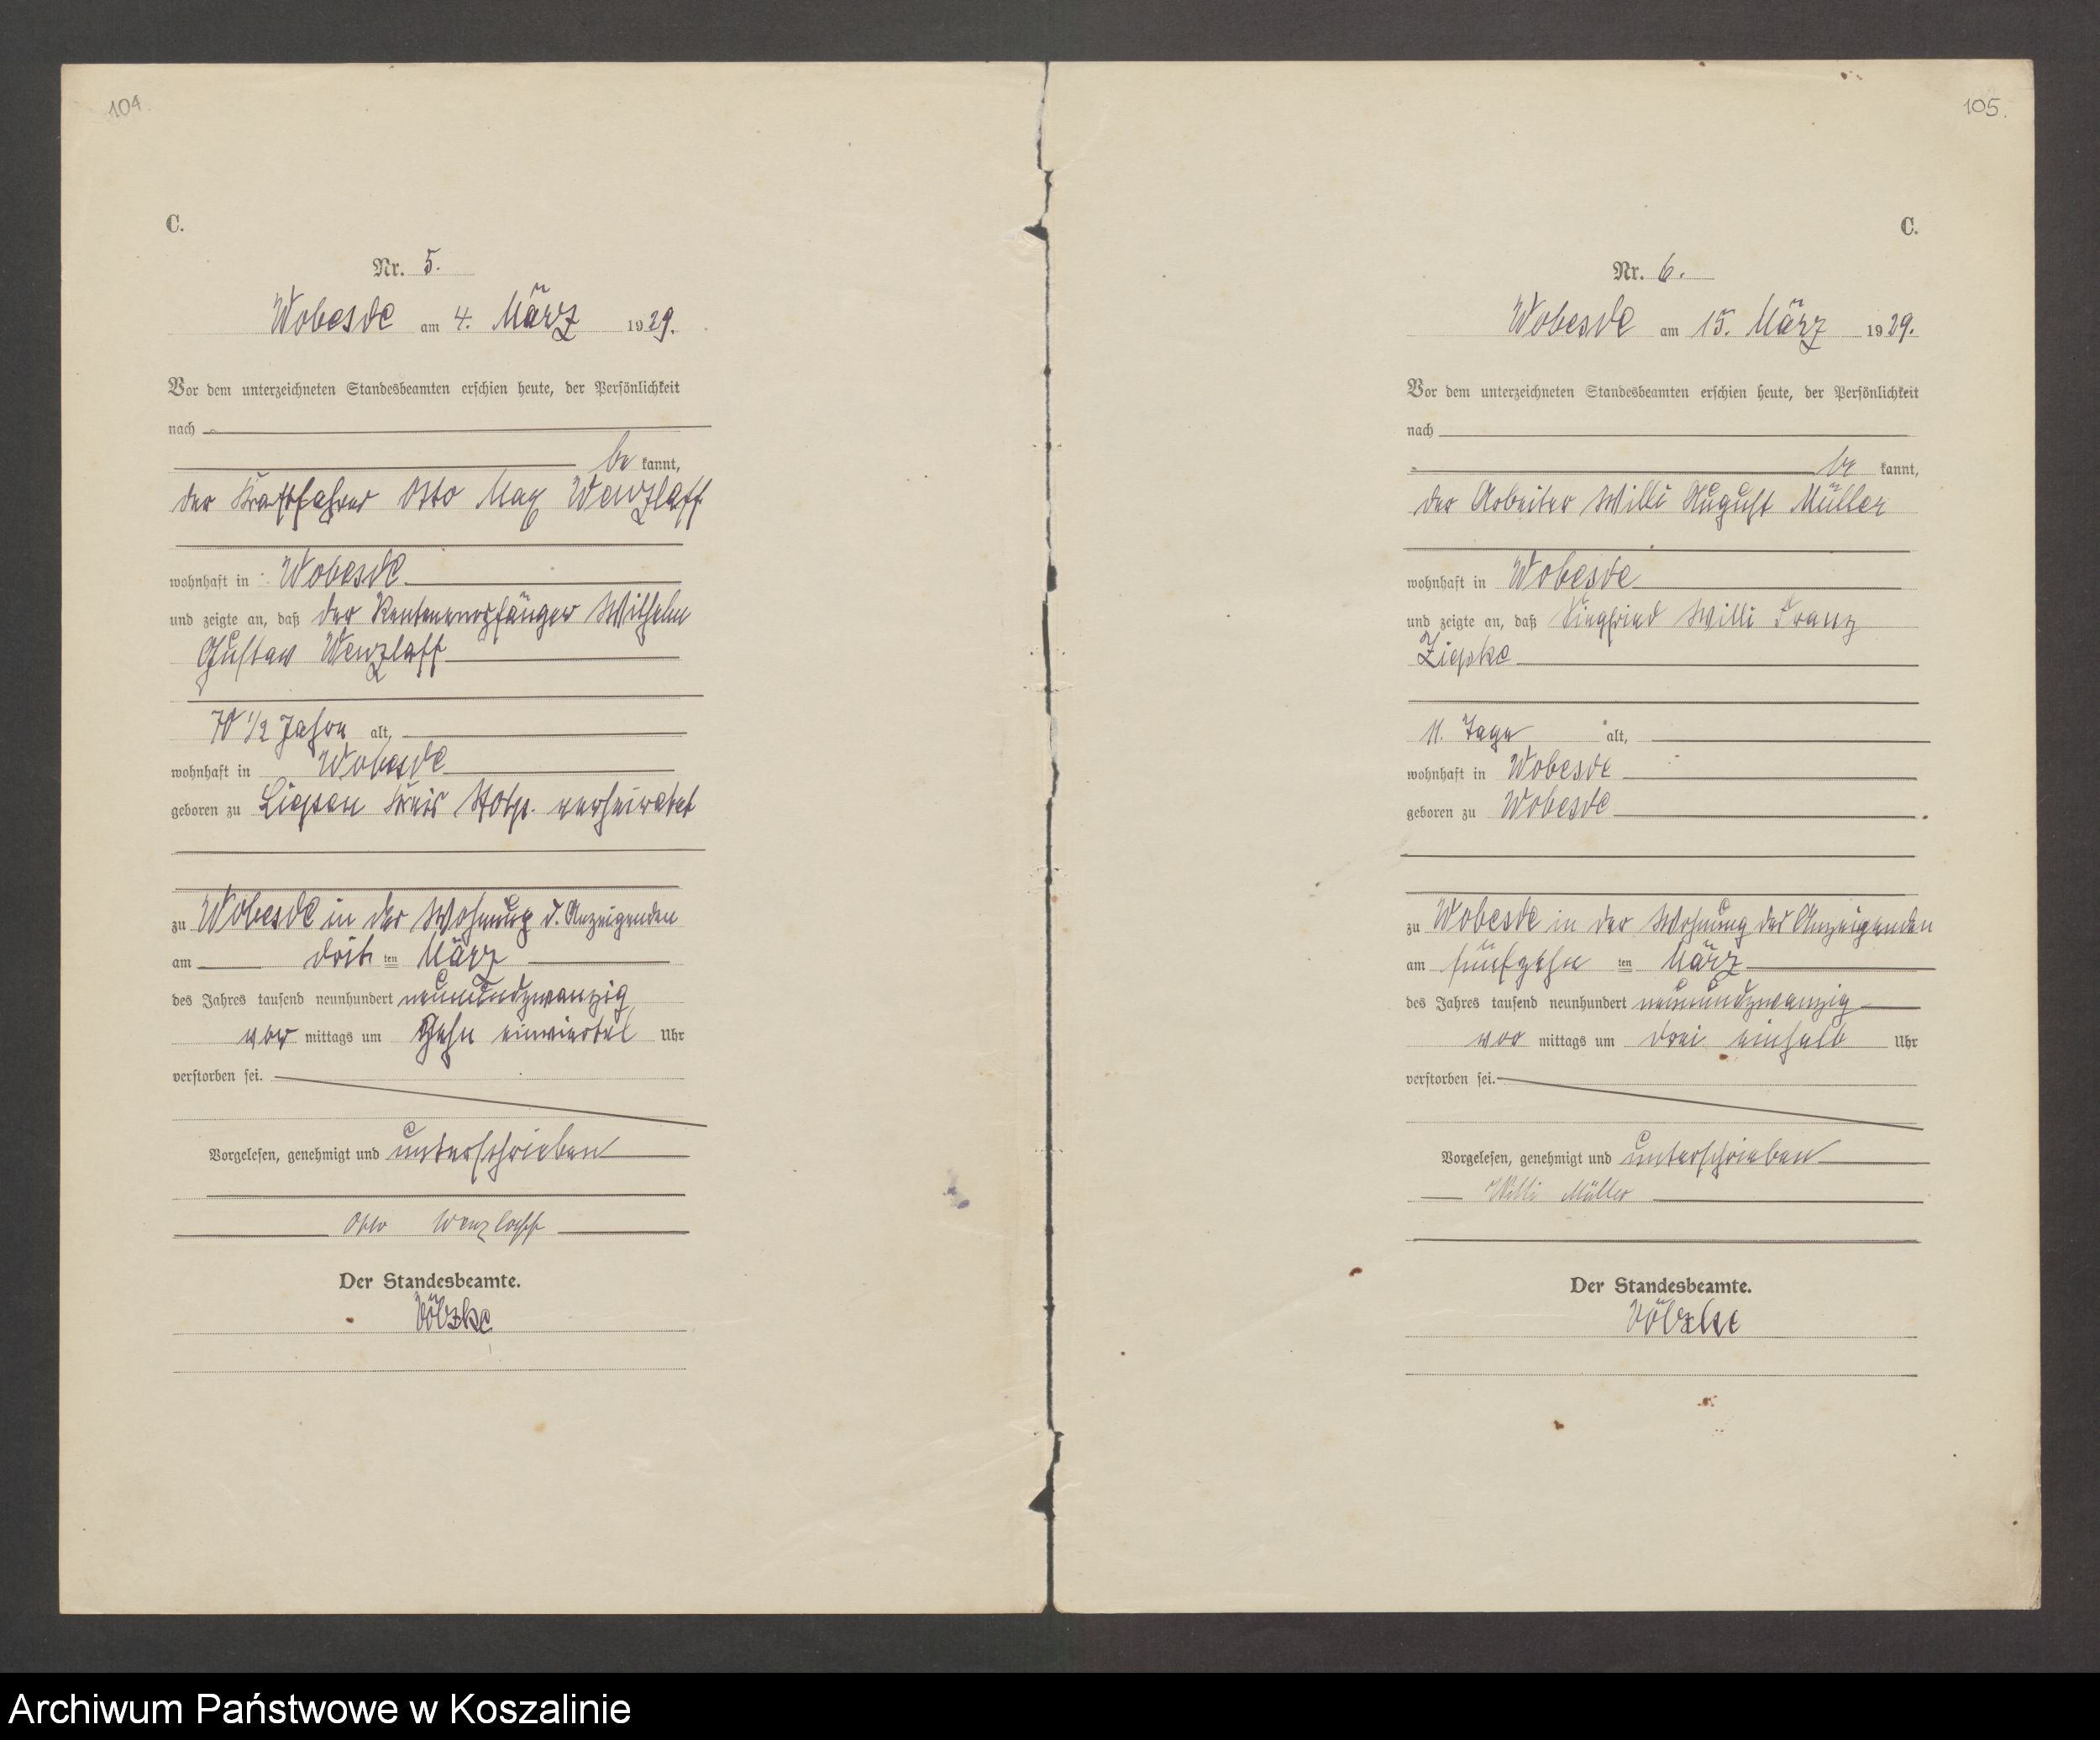 104.
C.
Nr. 5.
Wobesde am 4. März 1929.
Vor dem unterzeichneten Standesbeamten erschien heute, der Persönlichkeit
nach
be kannt,
der Kraftfahrer Otto Max Wenzlaff
wohnhaft in Wobesde
und zeigte an, daß der Rentenempfänger Wilhelm
Gustav Wenzlaff
70 1/2 Jahre alt,
wohnhaft in Wobesde
geboren zu Liepen Kreis Stolp. verheiratet
zu Wobesde in der Wohnung d. Anzeigenden
am drit ten März
des Jahres tausend neunhundert neunundzwanzig
vor mittags um Zehn einviertel Uhr
verstorben sei.
Vorgelesen, genehmigt und unterschrieben
Otto Wenzlaff
Der Standesbeamte.
Völzke
105.
C.
Nr. 6.
Wobesde am 15. März 1929.
Vor dem unterzeichneten Standesbeamten erschien heute, der Persönlichkeit
nach
be kannt,
der Arbeiter Willi August Müller
wohnhaft in Wobesde
und zeigte an, daß Siegfried Willi Franz
Ziepke
11. Tage alt,
wohnhaft in Wobesde
geboren zu Wobesde
zu Wobesde in der Wohnung des Anzeigenden
am fünfzehn ten März
des Jahres tausend neunhundert neunundzwanzig
vor mittags um drei einhalb Uhr
verstorben sei.
Vorgelesen, genehmigt und unterschrieben
Willi Müller
Der Standesbeamte.
Völzke
Archiwum Państwowe w Koszalinie